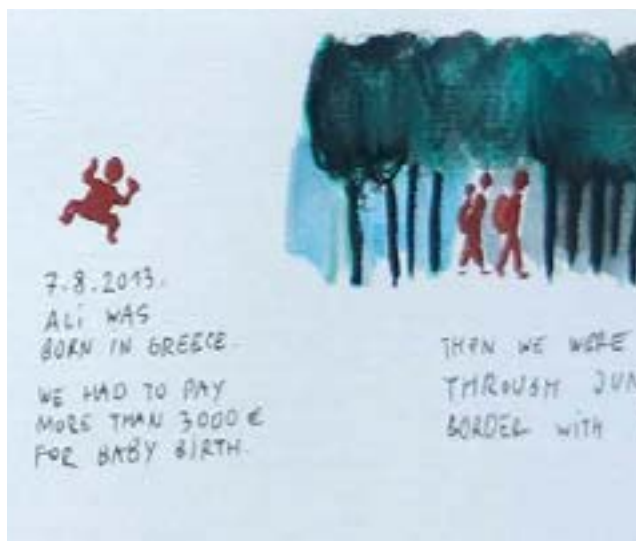 7.8.2013.
ALi WAS
BORN IN GREECE.
WE HAD TO PAY
MORE THAN 3000 €
FOR BABY BIRTH.
THEN WE WERE
THROUGH JUN
BORDER WiTH